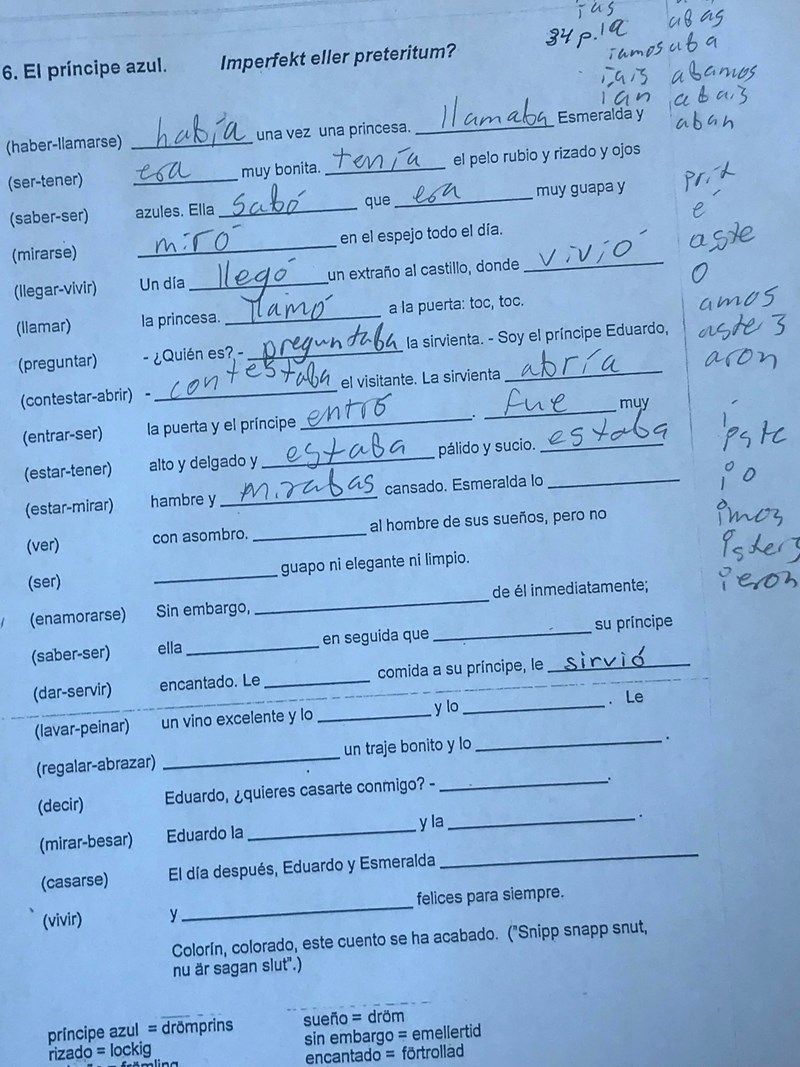 ías abas
34 p. 1a
íamos aba
íais abamos
ían abais
aban
6. El príncipe azul. Imperfekt eller preteritum?
(haber-llamarse) había una vez una princesa. llamaba Esmeralda y
(ser-tener) era muy bonita. tenía el pelo rubio y rizado y ojos
(saber-ser) azules. Ella Sabó que era muy guapa y
(mirarse) miró en el espejo todo el día.
(llegar-vivir) Un día llegó un extraño al castillo, donde vivió
(llamar) la princesa. llamó a la puerta: toc, toc.
(preguntar) - ¿Quién es? - preguntaba la sirvienta. - Soy el príncipe Eduardo,
(contestar-abrir) - contestaba el visitante. La sirvienta abría
(entrar-ser) la puerta y el príncipe entró . fue muy
(estar-tener) alto y delgado y estaba pálido y sucio. estaba
(estar-mirar) hambre y mirabas cansado. Esmeralda lo
(ver) con asombro. al hombre de sus sueños, pero no
(ser) guapo ni elegante ni limpio.
(enamorarse) Sin embargo, de él inmediatamente;
(saber-ser) ella en seguida que su príncipe
(dar-servir) encantado. Le comida a su príncipe, le sirvió
(lavar-peinar) un vino excelente y lo y lo . Le
(regalar-abrazar) un traje bonito y lo .
(decir) Eduardo, ¿quieres casarte conmigo? - .
(mirar-besar) Eduardo la y la .
(casarse) El día después, Eduardo y Esmeralda
(vivir) y felices para siempre.
Colorín, colorado, este cuento se ha acabado. ("Snipp snapp snut,
nu är sagan slut".)
prit
é
aste
ó
amos
asteis
aron
í
iste
ió
imos
isteis
ieron
príncipe azul = drömprins
rizado = lockig
sueño = dröm
sin embargo = emellertid
encantado = förtrollad